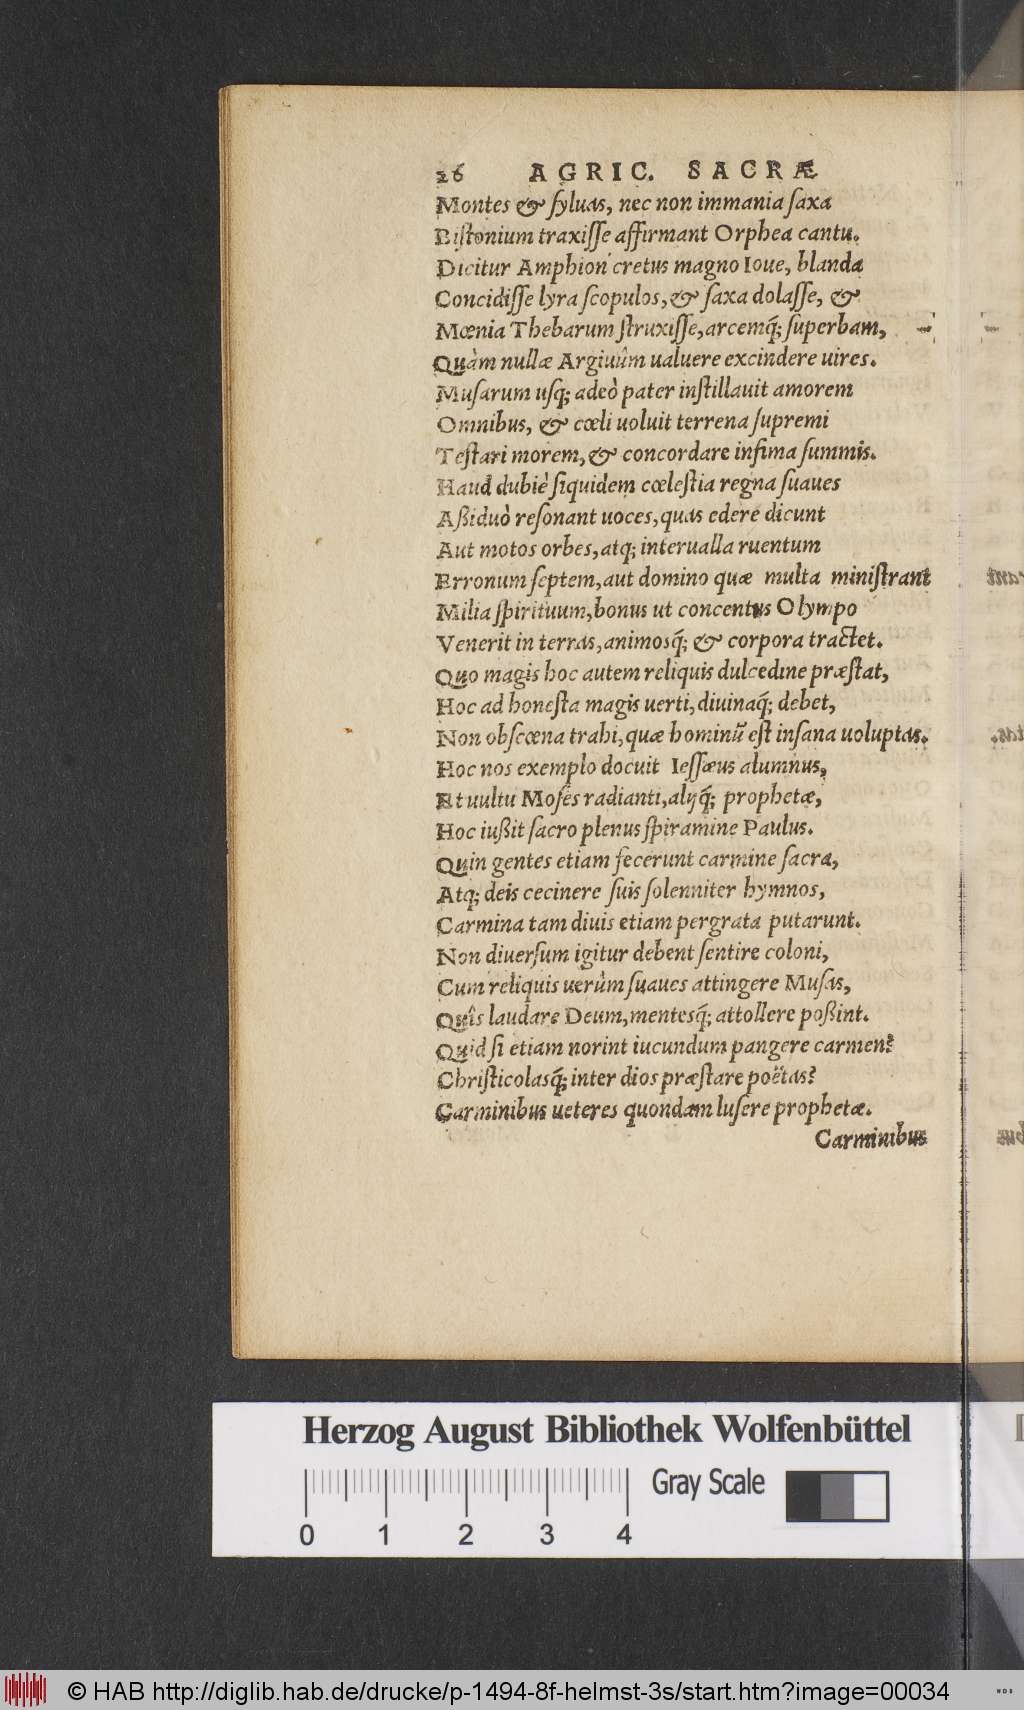 26 AGRIC. SACRÆ
Montes & ſyluas, nec non immania ſaxa
Biſtonium traxiſſe affirmant Orphea cantu.
Dicitur Amphion cretus magno Ioue, blanda
Concidiſſe lyra ſcopulos, & ſaxa dolaſſe, &
Mœnia Thebarum ſtruxiſſe, arcemq́; ſuperbam,
Quàm nullæ Argiuûm ualuere excindere uires.
Muſarum uſq; adeò pater inſtillauit amorem
Omnibus, & cœli uoluit terrena ſupremi
Teſtari morem, & concordare infima ſummis.
Haud dubiè ſiquidem cœleſtia regna ſuaues
Aßiduò reſonant uoces, quas edere dicunt
Aut motos orbes, atq; interualla ruentum
Erronum ſeptem, aut domino quæ multa miniſtrant
Milia ſpirituum, bonus ut concentus Olympo
Venerit in terras, animosq́; & corpora tractet.
Quo magis hoc autem reliquis dulcedine præſtat,
Hoc ad honeſta magis uerti, diuinaq́; debet,
Non obſcœna trahi, quæ hominũ eſt inſana uoluptas.
Hoc nos exemplo docuit Ieſſæus alumnus,
Et uultu Moſes radianti, alijq́; prophetæ,
Hoc iußit ſacro plenus ſpiramine Paulus.
Quin gentes etiam fecerunt carmine ſacra,
Atq; deis cecinere ſuis ſolenniter hymnos,
Carmina tam diuis etiam pergrata putarunt.
Non diuerſum igitur debent ſentire coloni,
Cum reliquis uerùm ſuaues attingere Muſas,
Quîs laudare Deum, mentesq́; attollere poßint.
Quid ſi etiam norint iucundum pangere carmen?
Chriſticolasq́; inter dios præſtare poëtas?
Carminibus ueteres quondam luſere prophetæ.
Carminibus
Herzog August Bibliothek Wolfenbüttel
Gray Scale
0 1 2 3 4
© HAB http://diglib.hab.de/drucke/p-1494-8f-helmst-3s/start.htm?image=00034